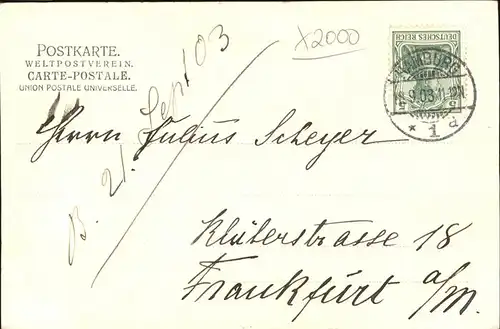 POSTKARTE.
WELTPOSTVEREIN.
CARTE-POSTALE.
UNION POSTALE UNIVERSELLE.
X2000
DEUTSCHES REICH
5 5
HAMBURG
9.03.11-12
* 1 d
B. 21. Sept 03
Herrn Julius Scheyer
Klüberstrasse 18
Frankfurt a/M.